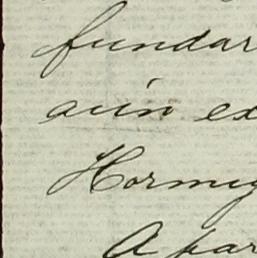 fundar
aún ex
Hormig
Apar